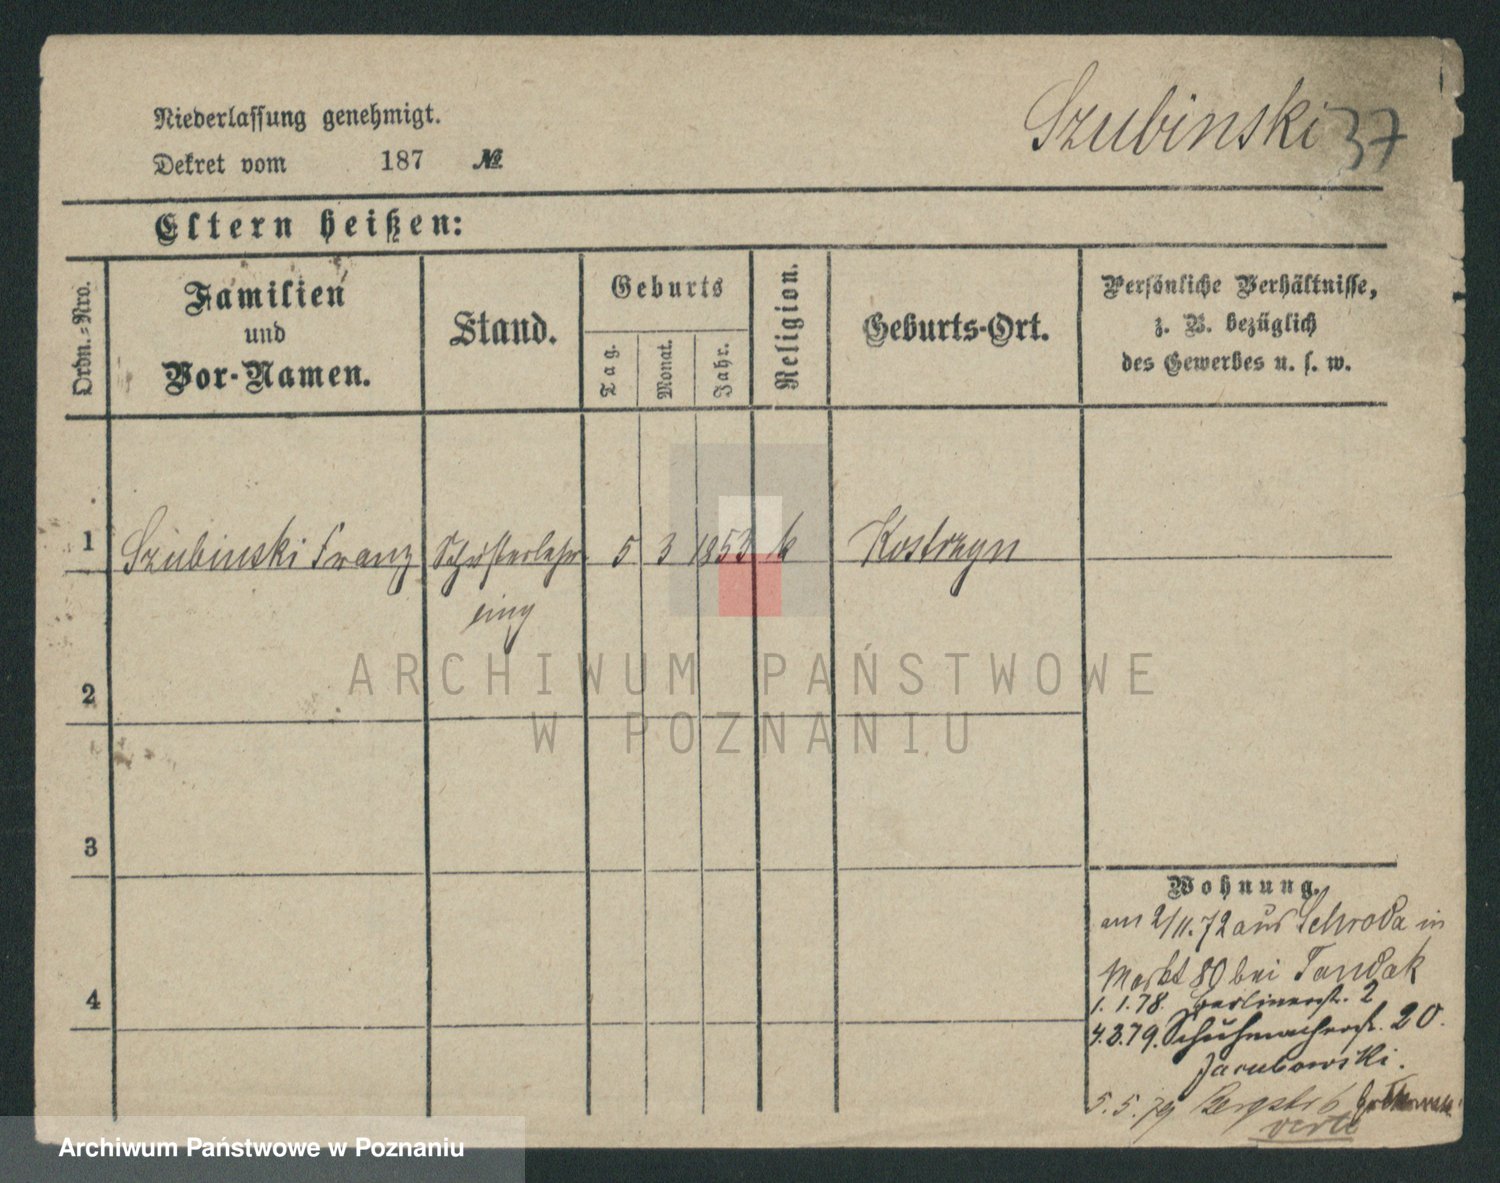 Niederlassung genehmigt.
Szubinski 37
Dekret vom 187 №
Eltern heißen:
Ordn.=Nro.
Familien
und
Vor-Namen.
Stand.
Geburts
Tag.
Monat.
Jahr.
Religion.
Geburts-Ort.
Persönliche Verhältnisse,
z. B. bezüglich
des Gewerbes u. s. w.
1 Szubinski Franz Schusterlehr- 5 3 1853 k Kostrzyn
ling
2
3
4
Wohnung.
am 2/11.72 aus Schroda in
Markt 80 bei Tandak
1. 1.78. Berlinerstr. 2
4.3.79. Schuhmacherstr. 20.
Jacubowski.
5.5.79 Bergstr 6
verte
ARCHIWUM PAŃSTWOWE
W POZNANIU
Archiwum Państwowe w Poznaniu